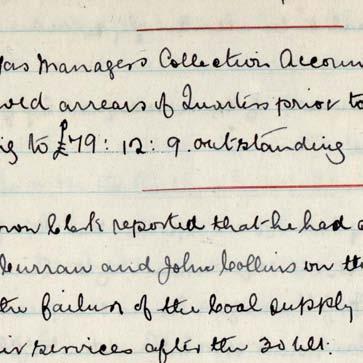 Gas Managers Collection Accoun
old arrears of Quarters prior to
ng to £79: 12: 9. outstanding
own Clerk reported that he had a
Curran and John Collins on the
the failure of the Coal supply
ir services after the 30 ult.